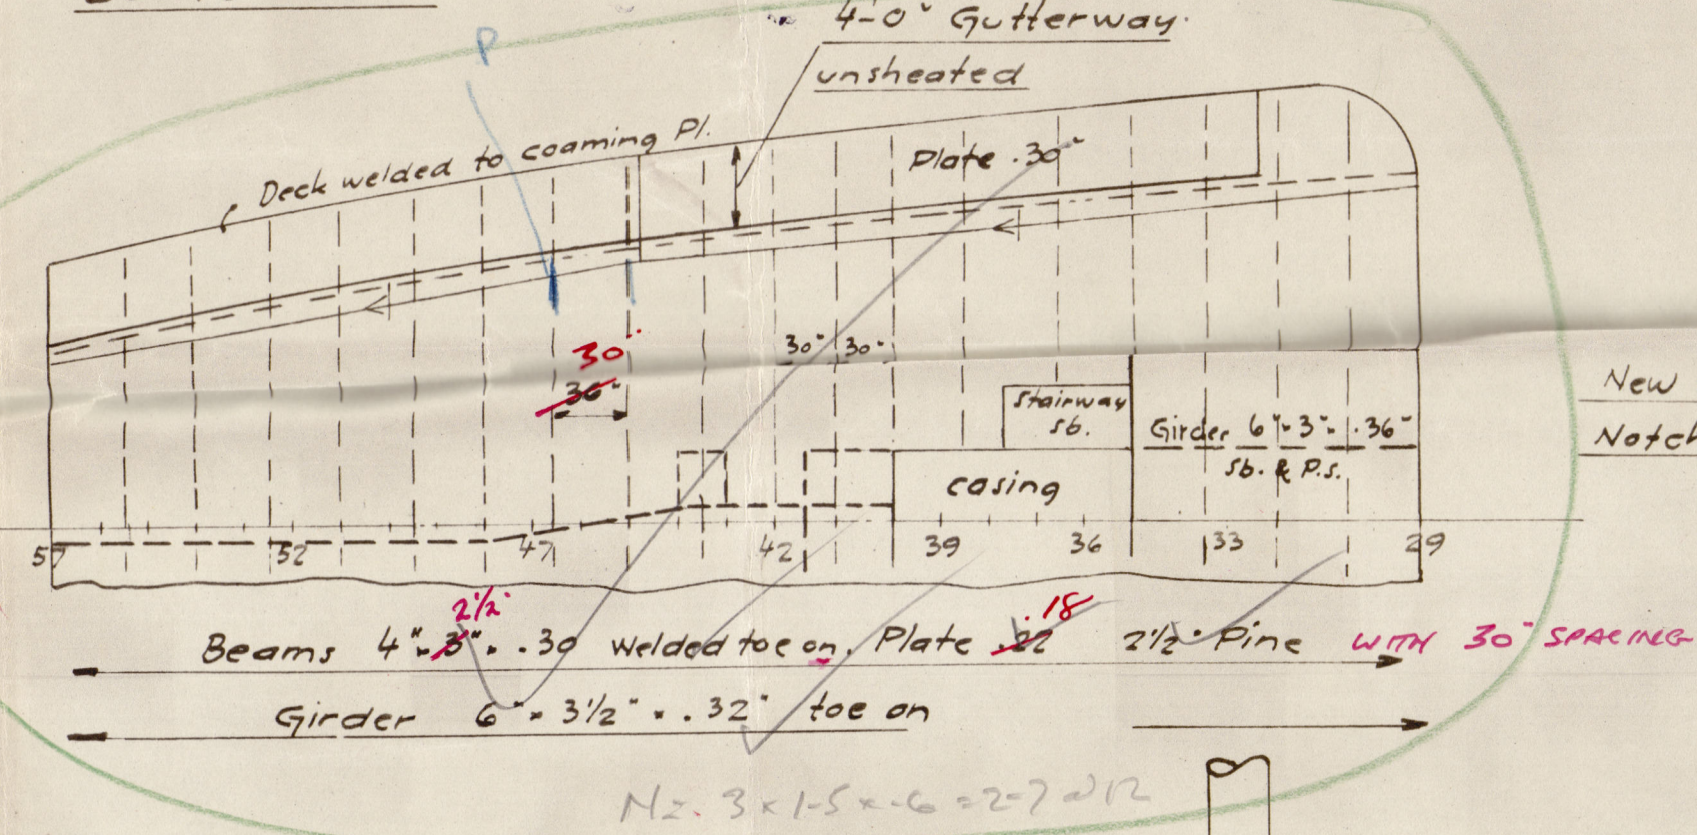 P
4'-0" Gutterway.
unsheated
Deck welded to coaming Pl.
Plate .30"
30"
36"
30" 30"
Stairway
sb.
Girder 6"×3"× .36"
sb. & P.S.
casing
New
Notch
57 52 47 42 39 36 33 29
2½"
.18
Beams 4"×3"× .30 welded toe on. Plate .22 2½" Pine WITH 30" SPACING
Girder 6"× 3½"× .32" toe on